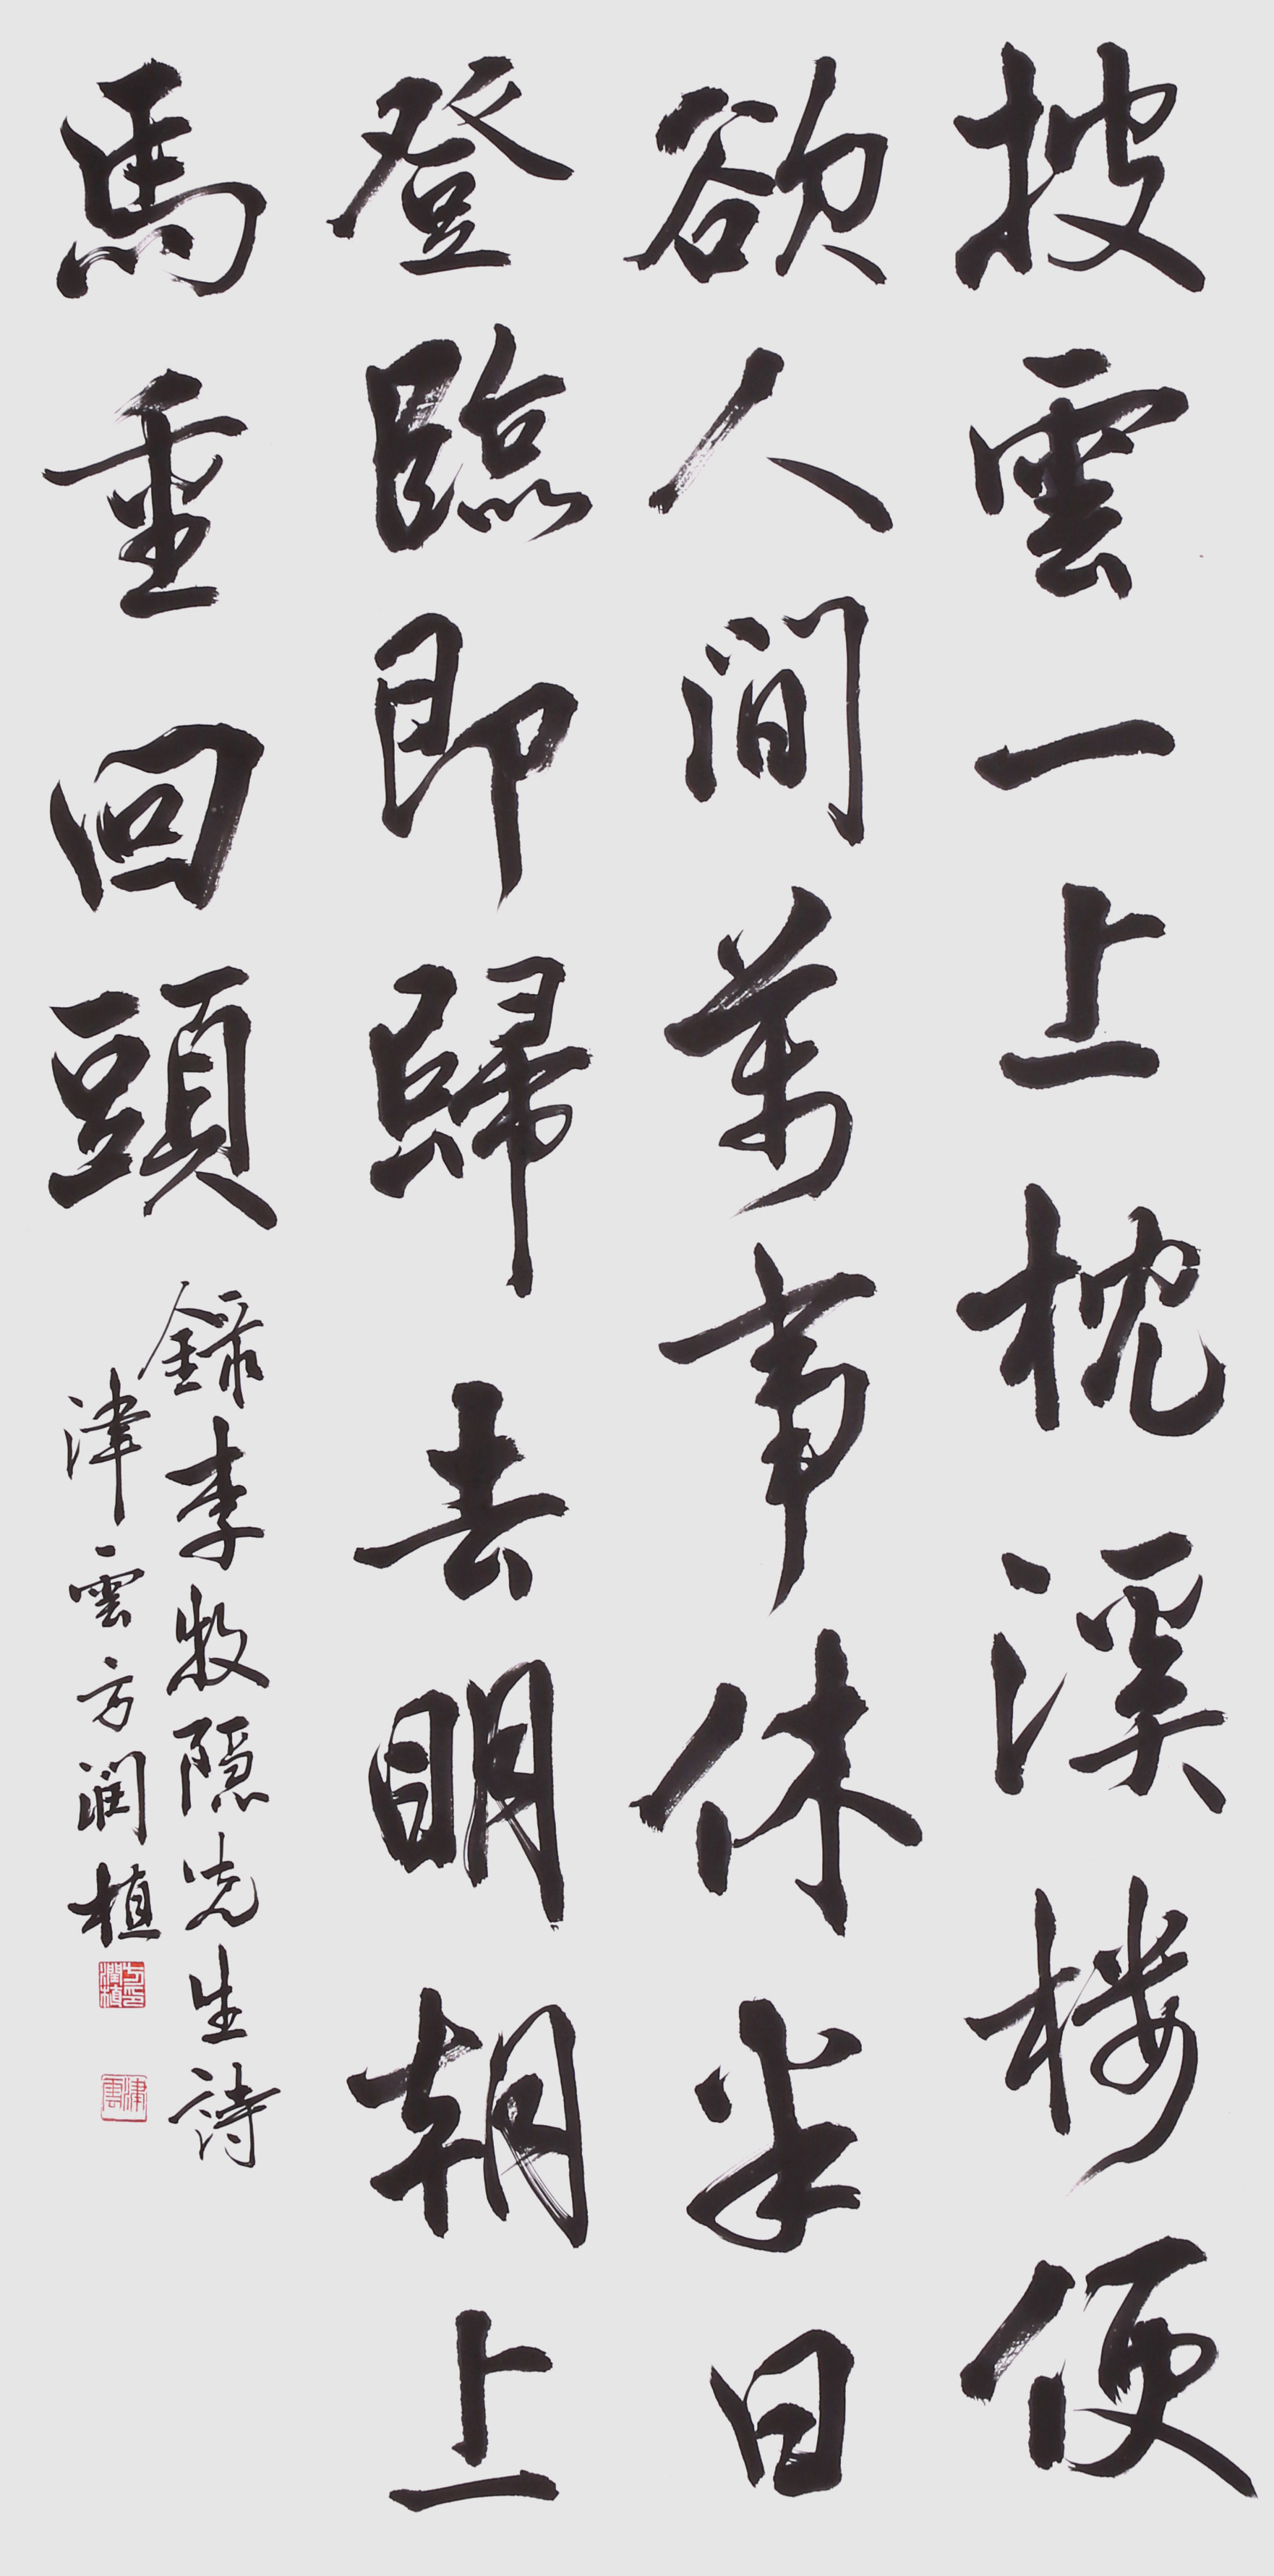 披雲一上枕溪楼便
欲人間萬事休半日
登臨即歸去明朝上
馬重回頭
錄李牧隱先生詩
津雲方润植
方印潤植
津雲